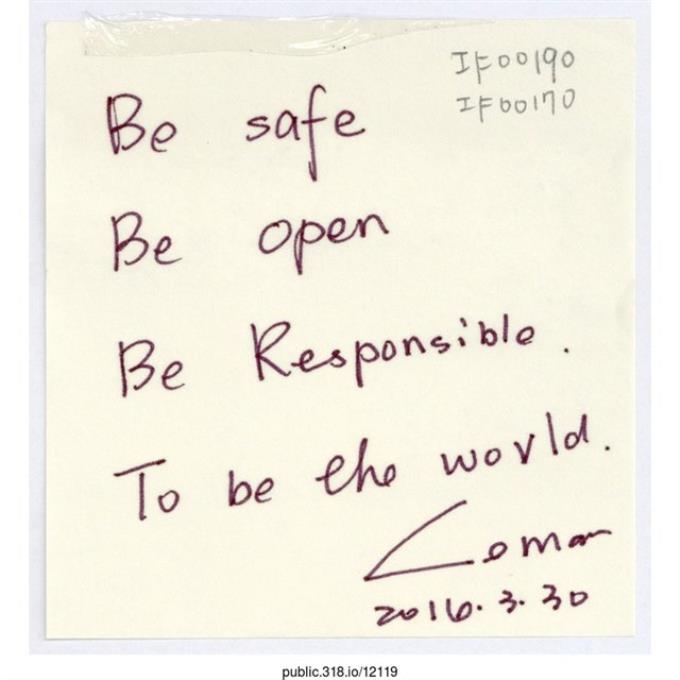 IF00190
IF00170
Be safe
Be open
Be Responsible.
To be the world.
2016.3.30
public.318.io/12119